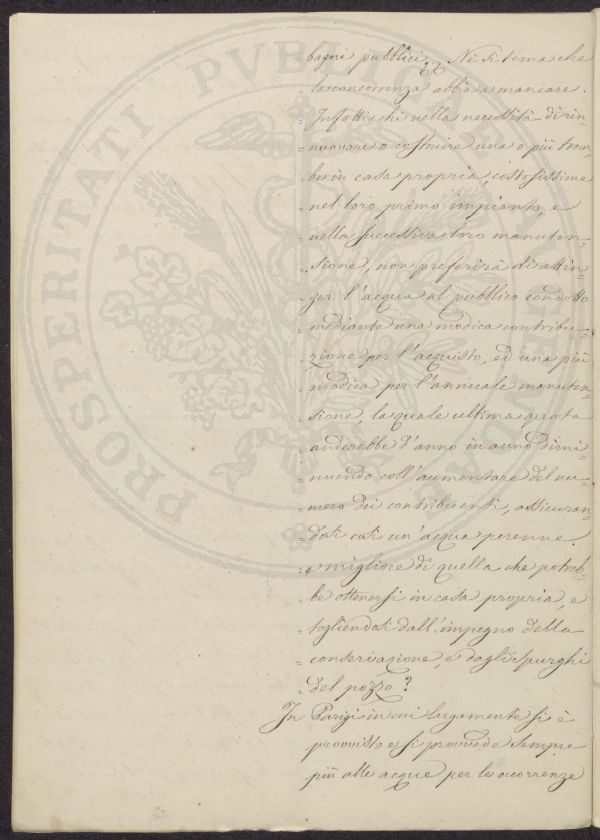 = bagni pubblici. Nè si tema che
= la concorrenza abbia a mancare.
= Infatti chi nella necessità di rin=
= nuovare o costruire una o più trom=
= be in casa propria, costosissime
= nel loro primo impianto, e
= nella successiva loro manuten=
= sione, non preferirà di attin=
= ger l'acqua al pubblico condotto
= mediante una modica contribu=
= zione per l'acquisto, ed una più
= modica per l'annuale manuten=
= sione, la quale ultima quota
= anderebbe d'anno in anno dimi=
= nuendo coll'aumentare del nu=
= mero dei contribuenti, assicuran=
= dosi così un'acqua perenne
= e migliore di quella che potreb=
= be ottenersi in casa propria, e
= togliendosi dall'impegno della
= conservazione, e dagli spurghi
= del pozzo?
In Parigi in cui largamente si è
provvisto e si provvede sempre
più alle acque per le occorrenze
PROSPERITATI PVBLICAE